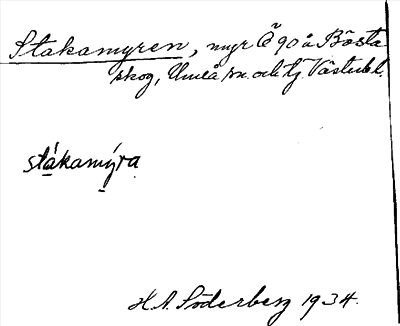 Stakamyren, myr Ö 90 å Bösta
skog, Umeå sn. och tg. Västerb. l.
stákamýra
H.A. Söderberg 1934.